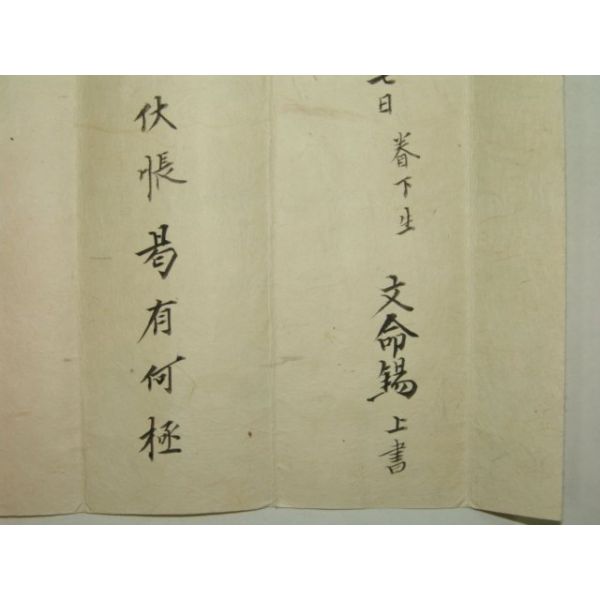 日 眷下生 文命錫 上書
伏悵曷有何極